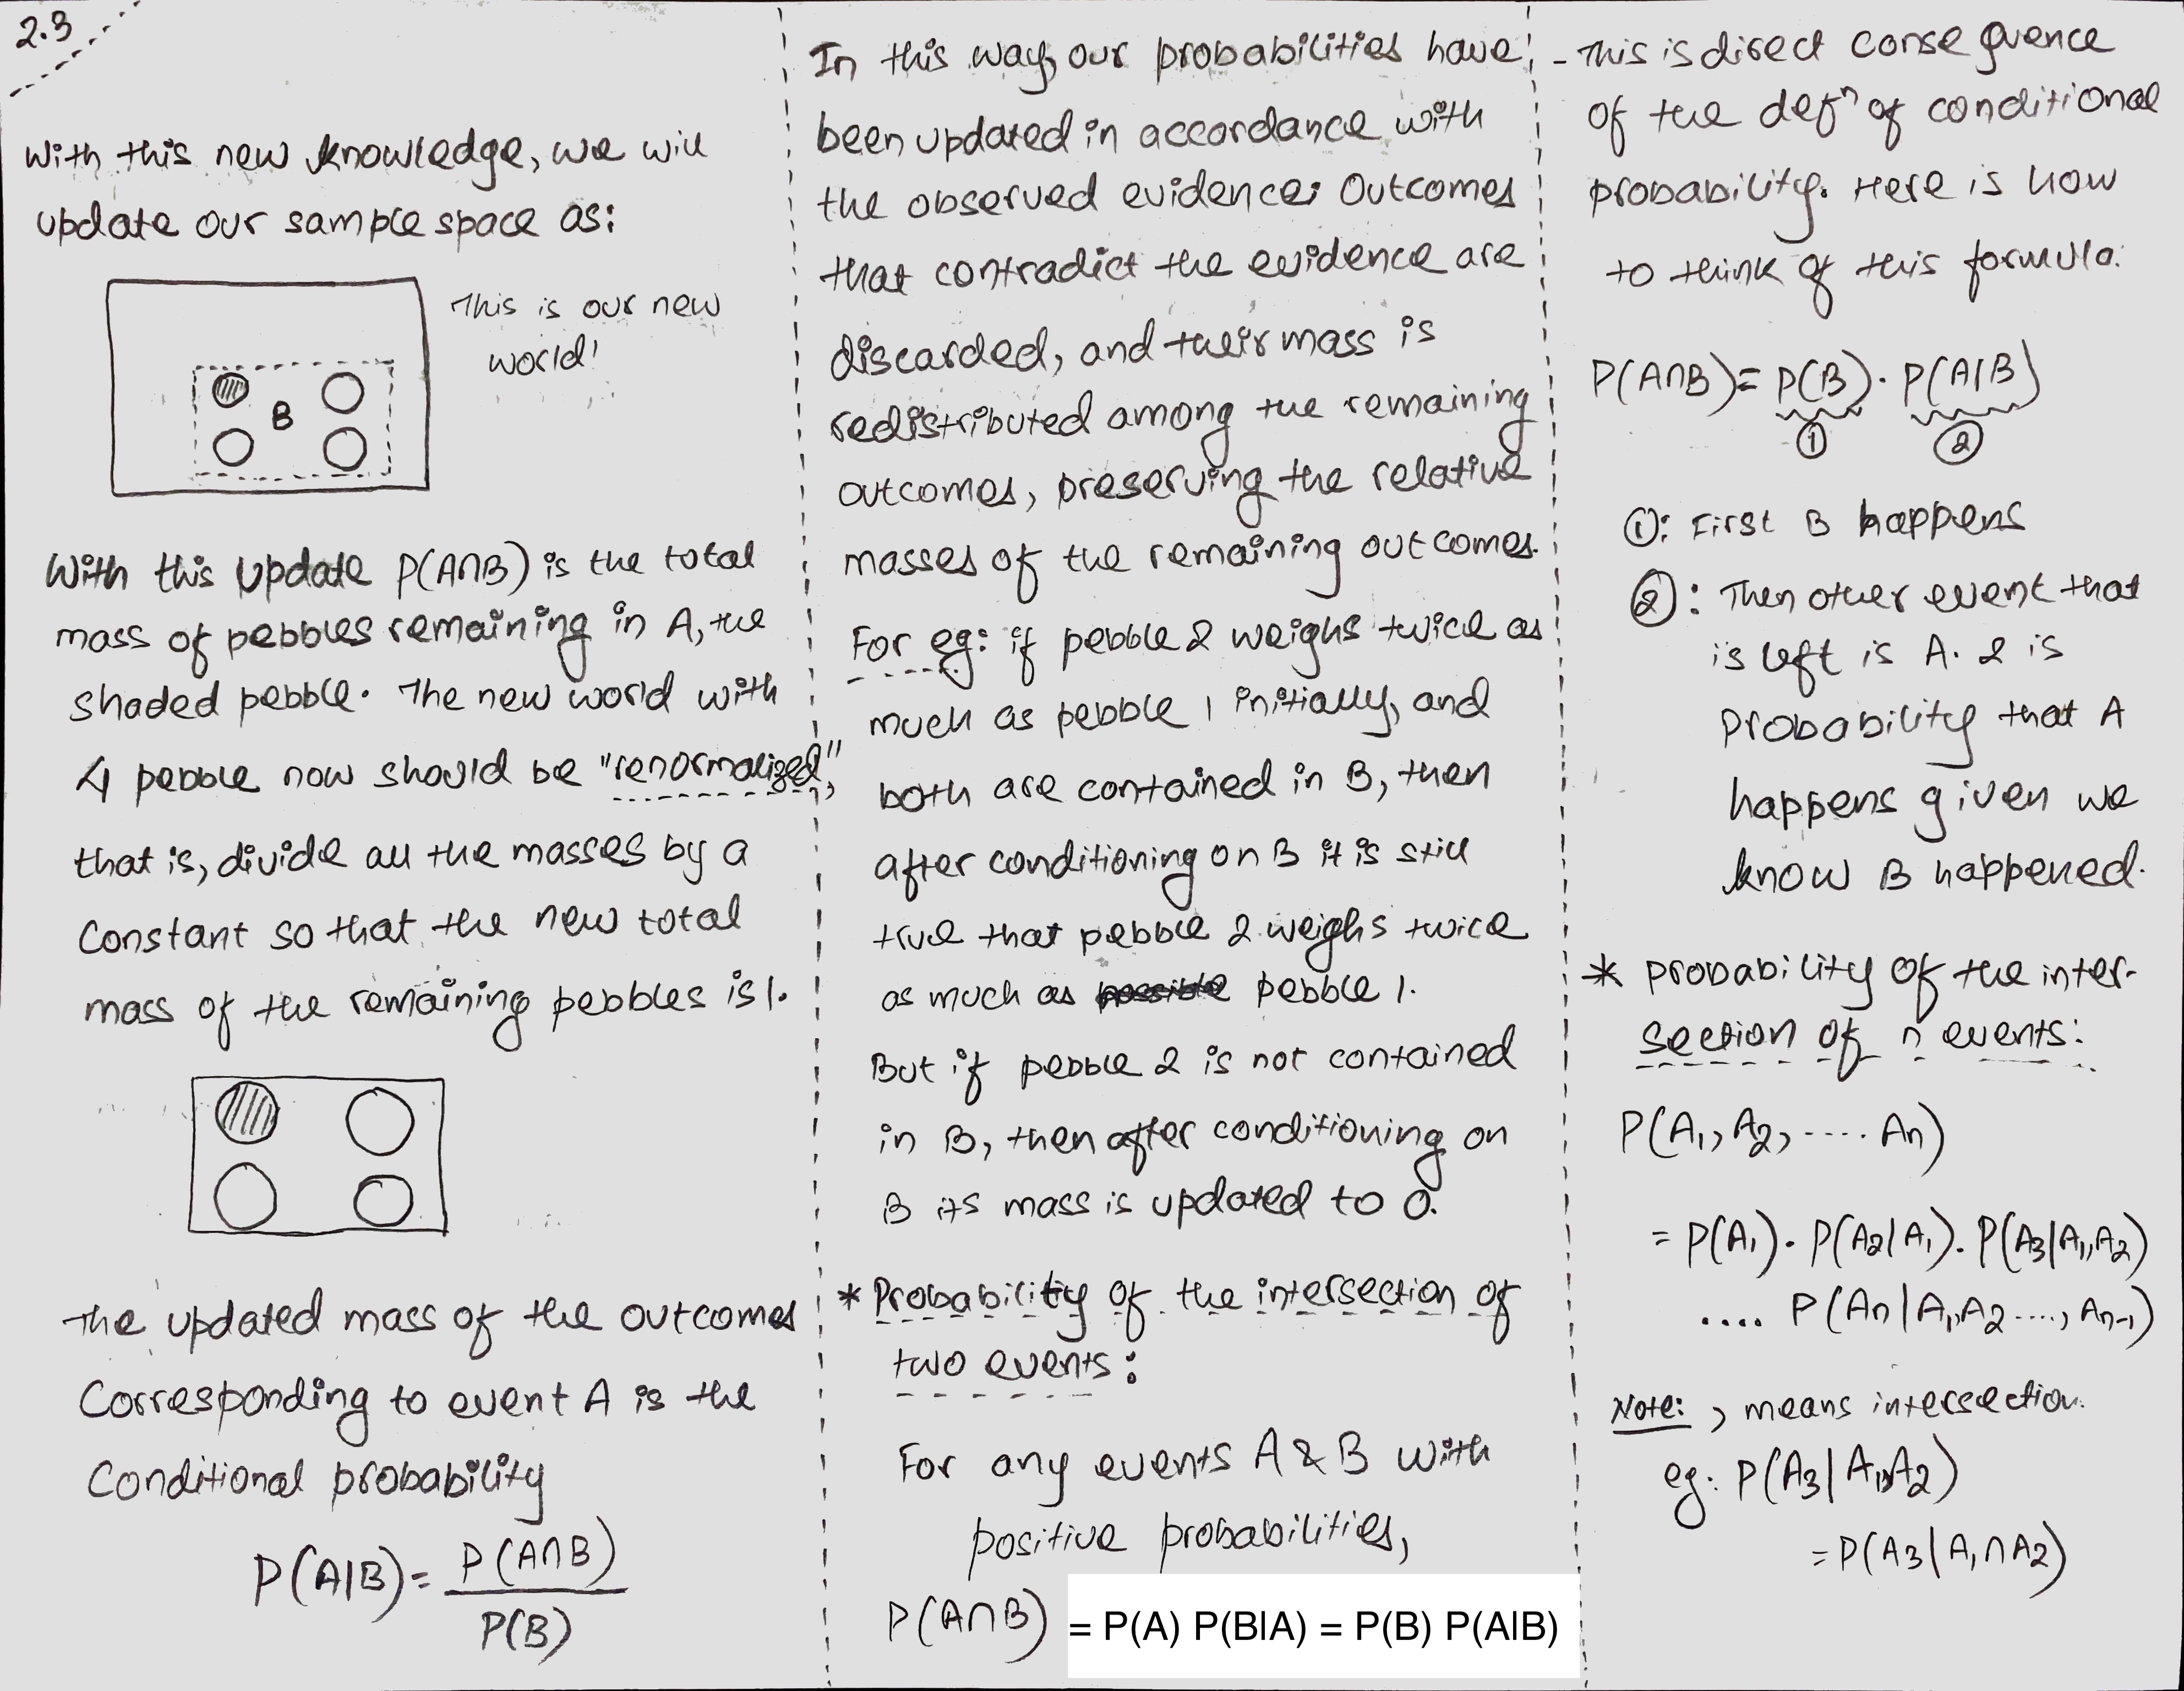 2.3
With this new knowledge, we will
update our sample space as:
This is our new
world!
B
With this update P(A∩B) is the total
mass of pebbles remaining in A, the
shaded pebble. The new world with
4 pebble now should be "renormalized,"
that is, divide all the masses by a
constant so that the new total
mass of the remaining pebbles is 1.
The updated mass of the outcomes
corresponding to event A is the
Conditional probability
P(A|B) = P(A∩B)
P(B)
In this way, our probabilities have
been updated in accordance with
the observed evidence: Outcomes
that contradict the evidence are
discarded, and their mass is
redistributed among the remaining
outcomes, preserving the relative
masses of the remaining outcomes.
For eg: if pebble 2 weighs twice as
much as pebble 1 initially, and
both are contained in B, then
after conditioning on B it is still
true that pebble 2 weighs twice
as much as possible pebble 1.
But if pebble 2 is not contained
in B, then after conditioning on
B its mass is updated to 0.
* Probability of the intersection of
two events:
For any events A & B with
positive probabilities,
P(A∩B) = P(A) P(B|A) = P(B) P(A|B)
- This is direct consequence
of the defⁿ of conditional
probability. Here is how
to think of this formula:
P(A∩B) = P(B) · P(A|B)
① ②
①: First B happens
②: Then other event that
is left is A. 2 is
probability that A
happens given we
know B happened.
* probability of the inter-
section of n events:
P(A₁, A₂, .... Aₙ)
= P(A₁) · P(A₂|A₁) · P(A₃|A₁,A₂)
.... P(Aₙ|A₁,A₂ ...., Aₙ₋₁)
Note: , means intersection.
eg: P(A₃|A₁,A₂)
= P(A₃|A₁∩A₂)